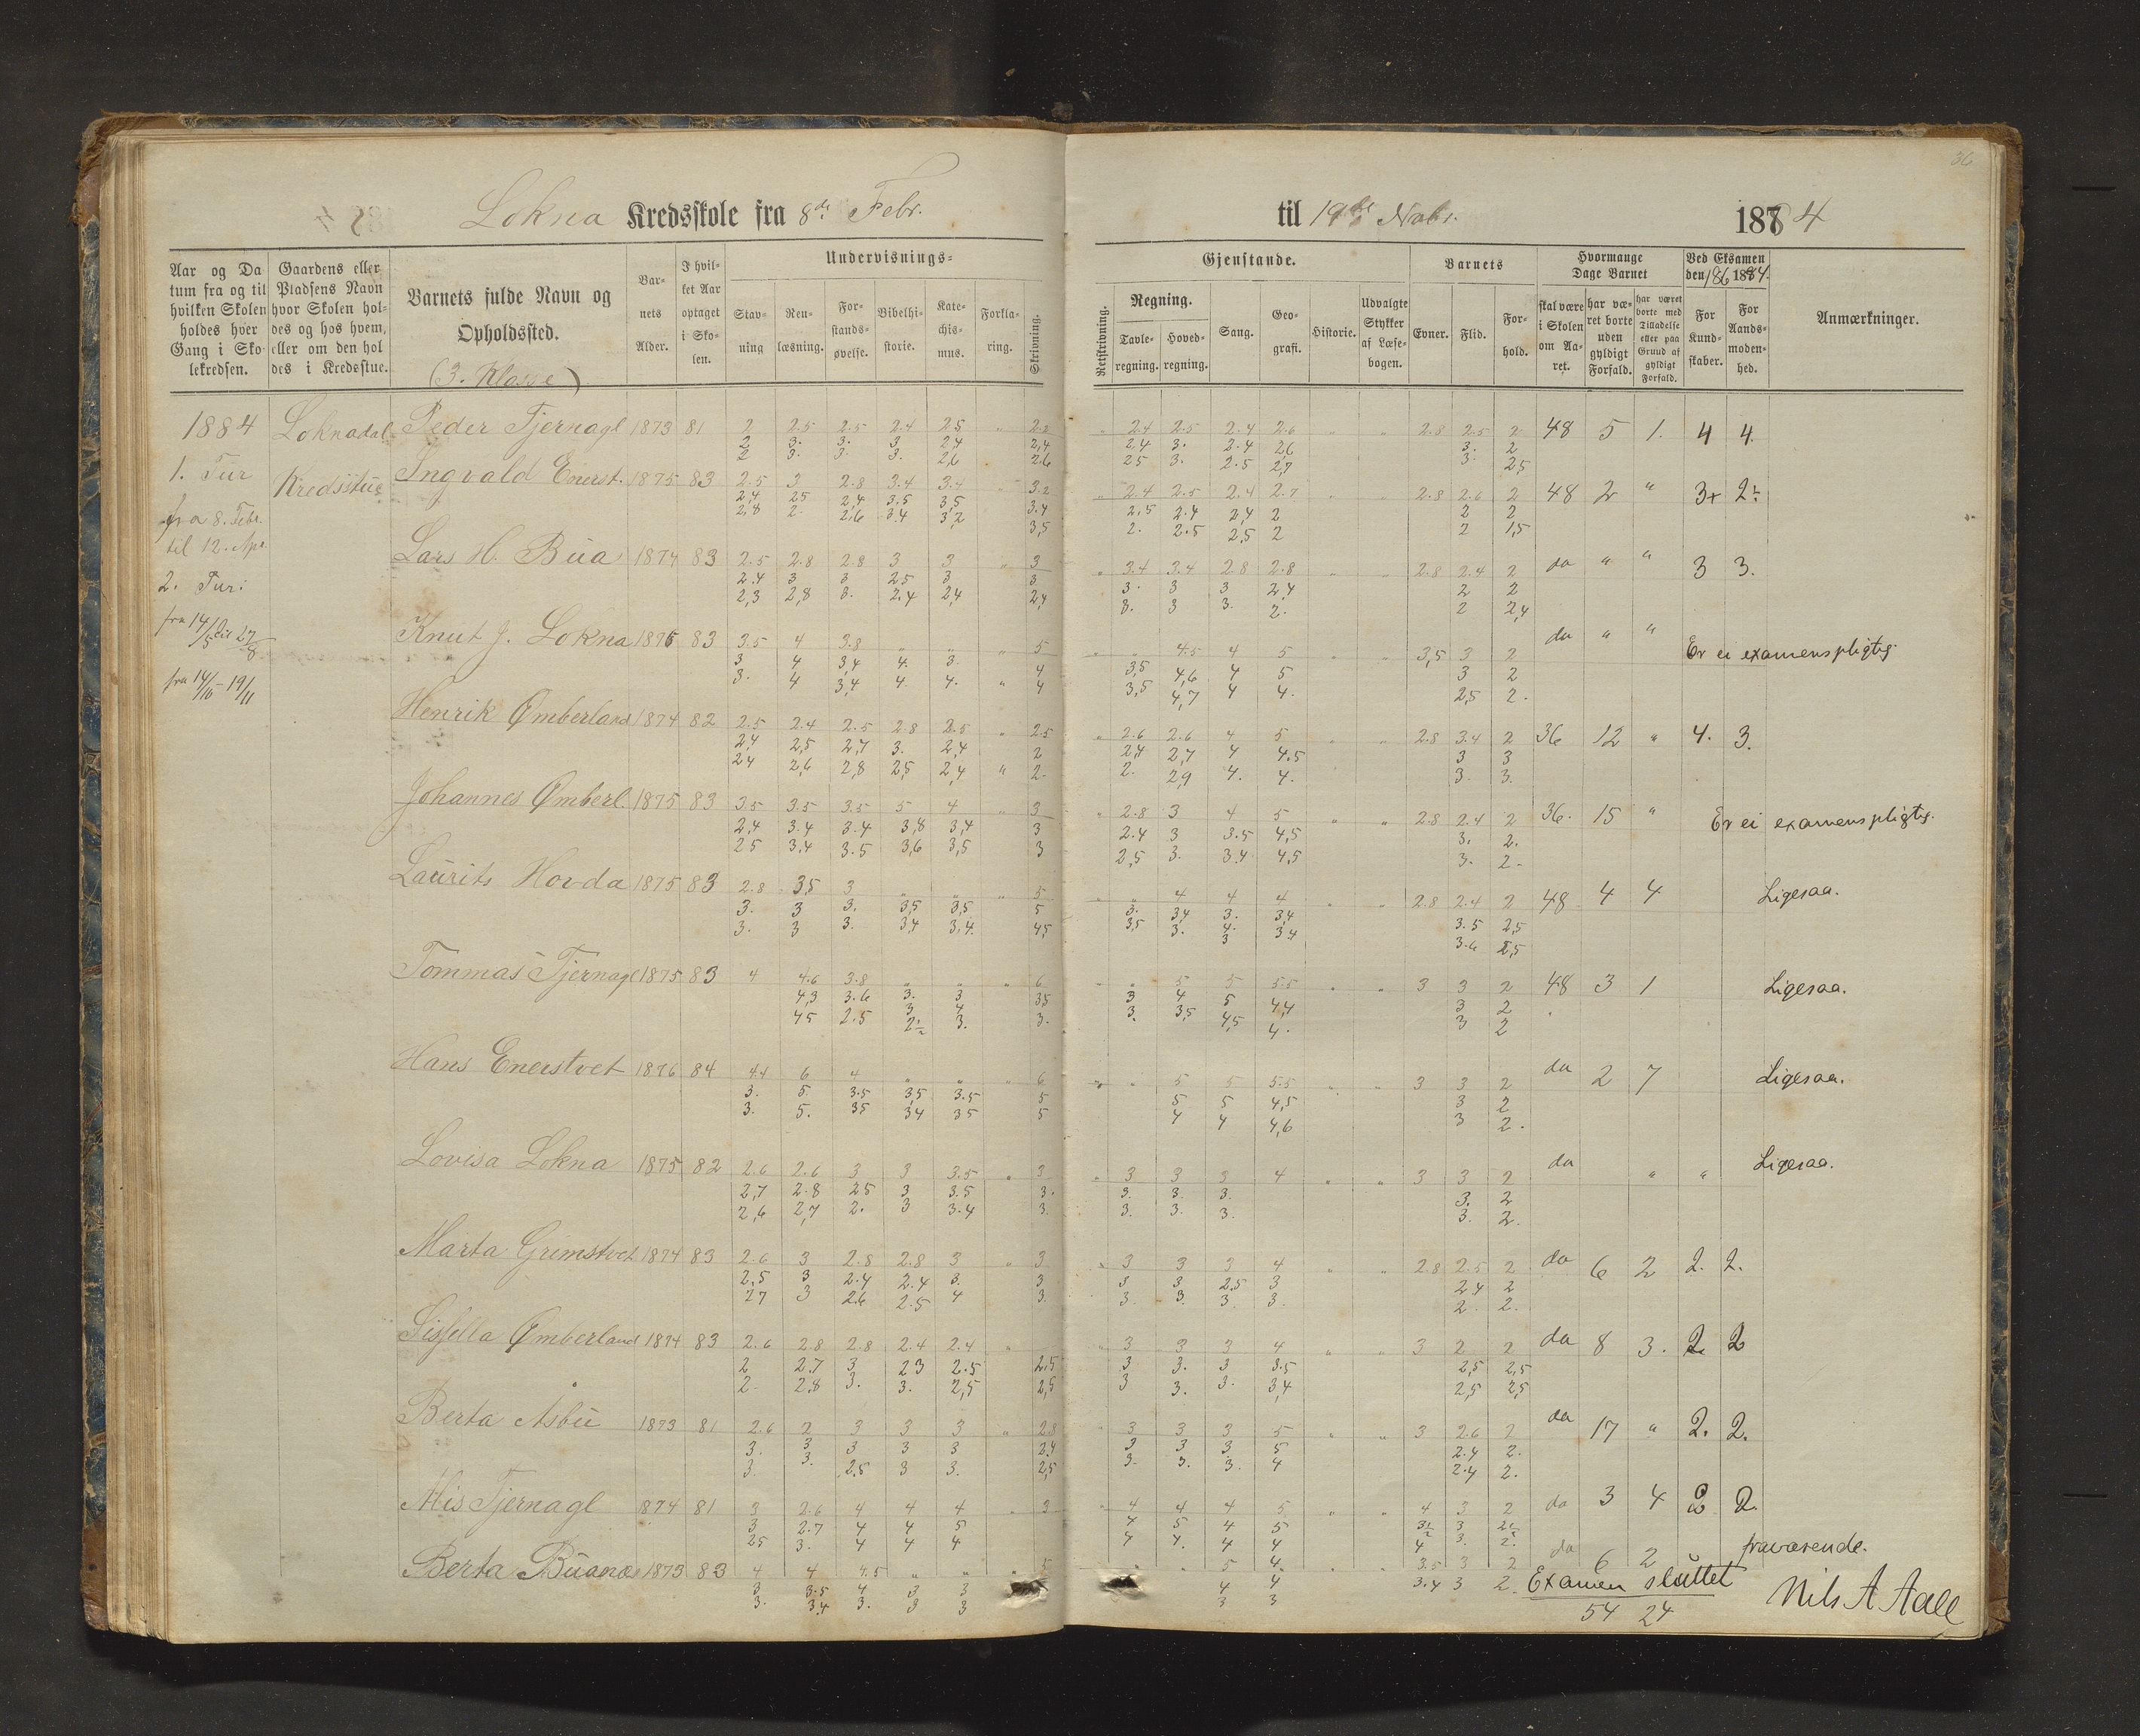 36
Lokna Kredsskole fra 8de Febr. til 19de Nobr. 1884
Aar og Da tum fra og til hvilken Skolen holdes hver Gang i Sko- lekredsen.
Gaardens eller Pladsens Navn hvor Skolen hol- des og hos hvem, eller om den hol des i Kredsstue.
Barnets fulde Navn og Opholdssted.
(3. Klasse)
Bar- nets Alder.
I hvil- ket Aar optaget i Sko- len.
Undervisnings-
Stav- ning
Ren- læsning.
For- stands- øvelse.
Bibelhi- storie.
Kate- chis- mus.
Forkla- ring.
Skrivning.
Gjenstande.
Retskrivning.
Regning.
Tavle- regning.
Hoved- regning.
Sang.
Geo- grafi.
Historie.
Udvalgte Stykker af Læse- bogen.
Barnets
Evner.
Flid.
For- hold.
Hvormange Dage Barnet
skal være i Skolen om Aa- ret.
har væ- ret borte uden gyldigt Forfald.
har været borte med Tilladelse eller paa Grund af gyldigt Forfald.
Ved Eksamen den 18/6 1884.
For Kund- skaber.
For Aands- moden- hed.
Anmærkninger.
1884 Loknadal Peder Tjernagl 1873 81 2 2.5 2.5 2.4 25 " 2.2 " 2.4 2.5 2.4 2.6 " " 2.8 2.5 2 48 5 1. 4 4.
2 3. 3. 3 2,4 2,4 2,4 3. 2.4 2,6 3. 2
2 3. 3. 3. 2,6 2,6 25 3. 2.5 2,7 3. 2,5
1. Tur Kredsstue Ingvald Enerst. 1875 83 2.5 3 2.8 3.4 3.4 3.2 " 2.4 2.5 2.4 2.7 " " 2.8 2.6 2 48 2 " 3+ 2÷
2,4 25 2,4 3,5 3,5 3.4 2,5 2.4 2,4 2 2 2
2,8 2. 2,6 3.4 3,2 3,5 2. 2.5 2,5 2 2 1,5
fra 8. Febr.
til 12. Apr.
Lars H. Bua 1874 83 2.5 2.8 2.8 3 3 " 3 " 3.4 3.4 2.8 2.8 " " 2.8 2.4 2 da " " 3 3.
2.4 3 3 25 3 3 3. 3 3 2,4 2 2
2,3 2,8 3. 2.4 2,4 2,4 3. 3 3. 2. 2 2,4
2. Tur:
fra 14/5 til 27/8
Knut J. Lokna 1876 83 3.5 4 3.8 " " " 5 " " 4.5 4 5 " " 3,5 3 2 da " " Er ei examenspligtig
3 4 3,4 4. 3. 4 3,5 4,6 4 5 3 2
3. 4 3,4 4. 4. " 4 3,5 4,7 4 4. 2,5 2.
fra 14/10 - 19/11
Henrik Ømberland 1874 82 2.5 2.4 2.5 2.8 2.5 " 2.5 " 2.6 2.6 4 5 " " 2.8 3.4 2 36 12 " 4. 3.
2,4 2,5 2,7 3. 2,4 2 2,4 2,7 4 4.5 3 3
24 2,6 2,8 2,5 2,4 " 2. 2. 2,9 4. 4. 3. 3.
Johannes Ømberl. 1875 83 3.5 3.5 3.5 5 4 " 3 " 2.8 3 4 5 " " 2.8 2.4 2 36. 15 " Er ei examenspligtig.
2,4 3.4 3.4 3,8 3,4 3 2.4 3 3.5 4,5 3. 2.
25 3,4 3.5 3,6 3,5 3 2,5 3. 3.4 4,5 3. 2-
Laurits Hovda 1875 83 2.8 3,5 3 " " " 5 " " 4 4 4 " " 2.8 2.4 2 48 4 4 Ligesaa.
3. 3 3. 3,5 3,5 5 3. 3,4 3. 3,4 3.5 2,5
3. 3 3. 3,4 3,4. 4,5 3,5 3. 4. 3,4 3.6 2,5
3
Tommas Tjernagl 1875 83 4 4.6 3.8 " " " 6 " " 5 5 5.5 " " 3 3 2 48 3 1 Ligesaa.
4,3 3.6 3. 3 3,5 3 4 5 4,4 3 2
45 2.5 3 4 3. 3. 3,5 4,5 4. 3 2
Hans Enerstvet 1876 84 4.4 6 4 " " " 6 " " 5 5 5.5 " " 3 3 2 da 2 7 Ligesaa.
3. 5. 3.5 3,5 3.5 5 5 5 4,5 3 2
3. 5. 35 34 35 5 4 4 4,6 3 2.
Lovisa Lokna 1875 82 2.6 2.6 3 3 3.5 " 3 " 3 3 3 4 " " 3 3 2 da " " Ligesaa.
2,7 2.8 25 3 3.5 3. 3. 3. 3. 3. 2
2,6 2,7 2. 3 3.4 3. 3. 3. 3. 3. 2.
Marta Grimstvet 1874 83 2.6 3 2.8 2.8 3 " 3 " 3 3 3 4 " " 2.8 2.5 2 da 6 2 2. 2.
2,5 3 2.4 2.4 3. 3 3 3 2,5 3 24 2
27 3 26 2.5 4 3. 3. 3. 3. 3. 2. 2.
Sissella Ømberland 1874 83 2.6 2.8 2.8 2.4 2.4 " 3 3 3 4 " " 3 2 2 da 8 3. 2. 2
2 2.7 3 23 2.5 2,5 3 3. 3 3.5 2,5 2,5
2. 2,8 3. 3. 2,5 2,5 3 3. 3. 3,4 2,5 2,5
Berta Åsbu 1873 81 2.6 2 3 3 3 " 2.8 " 3 3 3 5 " " 3 2.6 2 da 17 " 2. 2.
3. 3 3 3 3 2,4 3 3 3 5 2.4 2.
3. 3. 2.5 3 3. 2,5 3. 3. 3. 4 2.4 2.
Mis Tjernagl 1874 81 3 2.6 4 4 4 " 3 " 4 4 4 5 " " 4 3 2 da 3 4 2 2.
3 2.7 4 4 5 4 5 4 5 3½ 3 2½
25 3. 4 4 4 4 4. 4 4 4 3. 2.
Berta Buanes 1873 83 4 4 4.5 " " " 5 " " 5 4. " " 3.5 3 2 da 6 2 fraværende.
3 3.5 4 3 3 4 4 3.4 3 2.
3. 3,4 3. 3 3 3 3
Examen sluttet
54 24
Nils A Aall